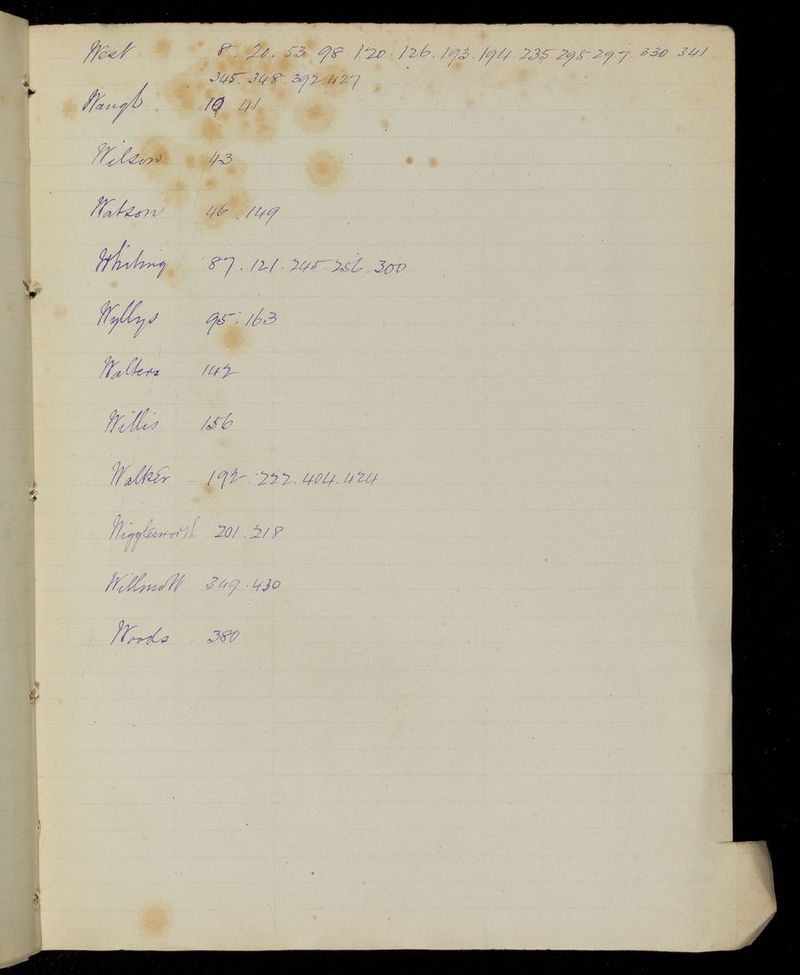 West 8. 20. 53. 98. 120. 126. 193. 194. 235. 295. 297. 330. 341
345. 348. 392. 427
Waugh 10 41
Wilson 43
Watson 46. 149
Whiting 87. 121. 245. 256. 300
Wyllys 95. 163
Walters 142
Willis 156
Walker 192. 222. 404. 424
Wigglesworth 201. 218
Willmott 349. 430
Woods 380